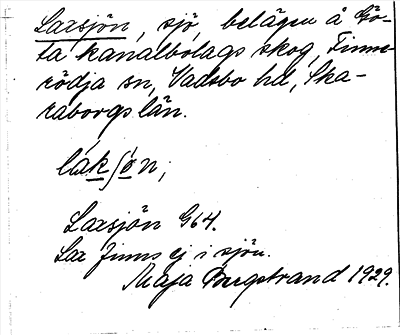 Laxsjön, sjö, belägen å Gö-
ta kanalbolags skog, Finne-
rödja sn, Vadsbo hd, Ska-
raborgs län.
lákʃö̀n;
Laxsjön G64.
Lax finns ej i sjön.
Maja Bergstrand 1929.